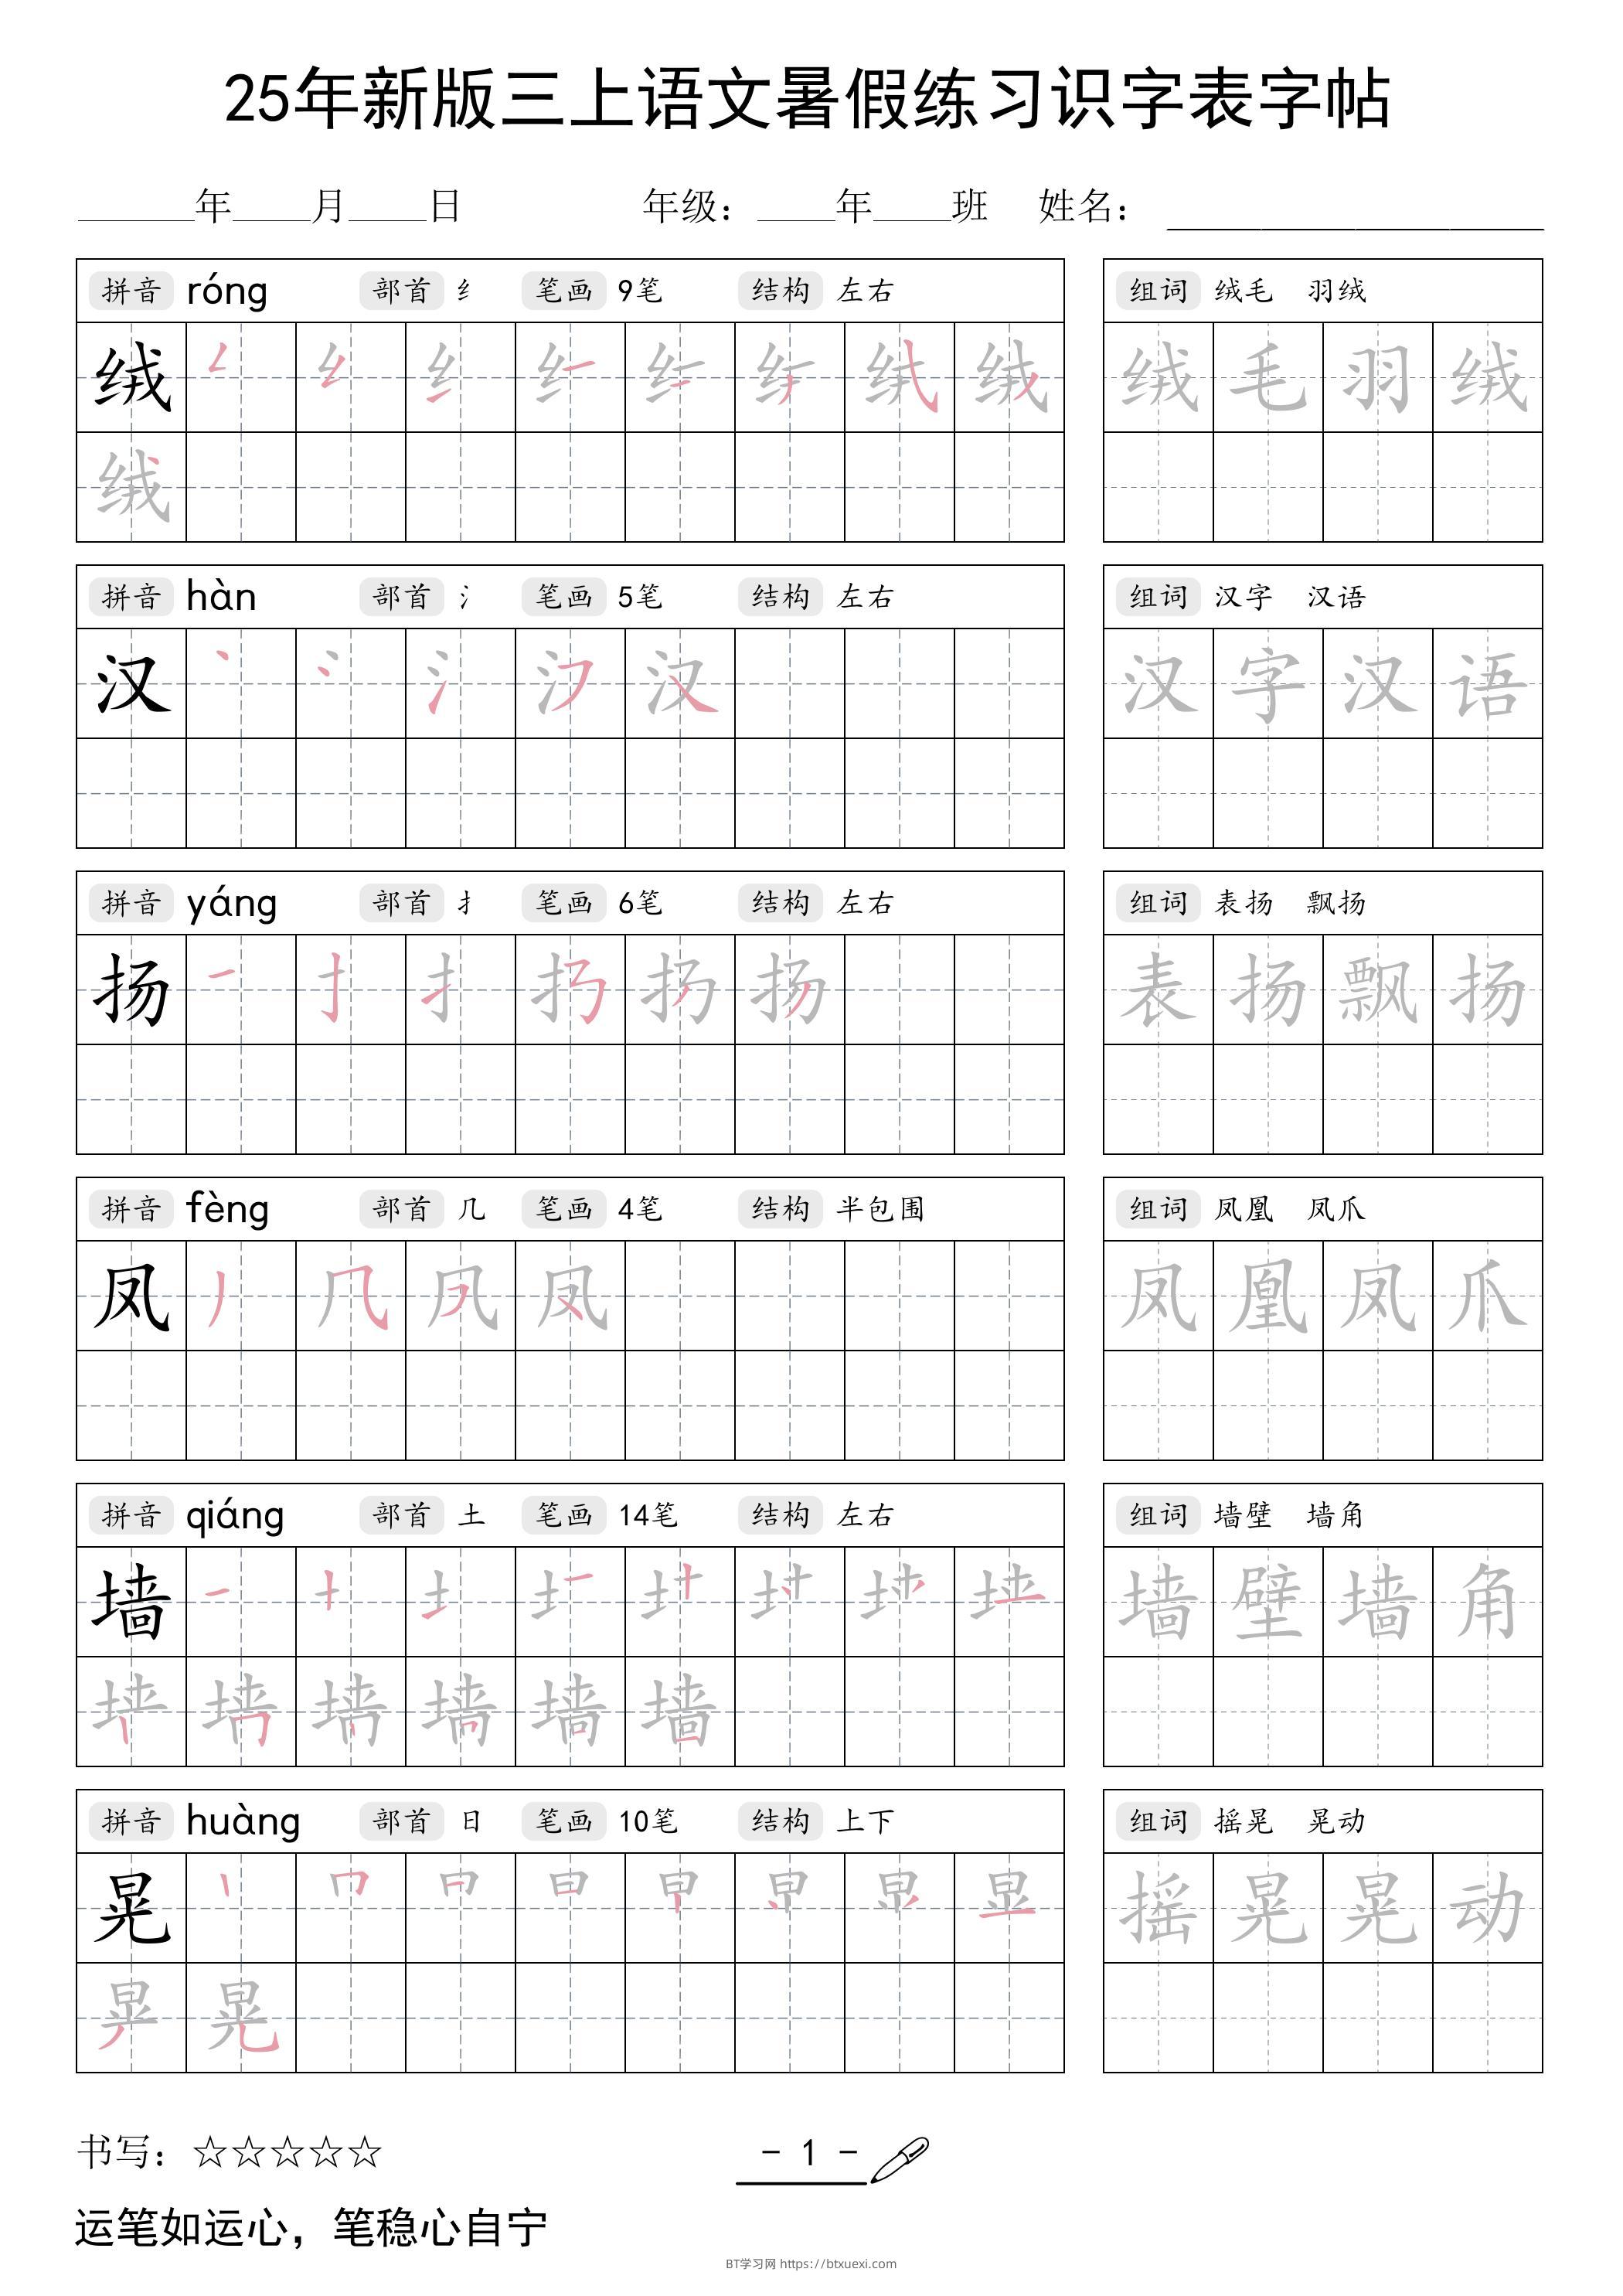 25年新版三上语文暑假练习识字表字帖
______年____月____日 年级：____年____班 姓名：
拼音 róng 部首 纟 笔画 9笔 结构 左右 组词 绒毛 羽绒
绒 绒毛羽绒
绒
拼音 hàn 部首 氵 笔画 5笔 结构 左右 组词 汉字 汉语
汉 汉字汉语
拼音 yáng 部首 扌 笔画 6笔 结构 左右 组词 表扬 飘扬
扬 表扬飘扬
拼音 fèng 部首 几 笔画 4笔 结构 半包围 组词 凤凰 凤爪
凤 凤凰凤爪
拼音 qiáng 部首 土 笔画 14笔 结构 左右 组词 墙壁 墙角
墙 墙壁墙角
墙
拼音 huàng 部首 日 笔画 10笔 结构 上下 组词 摇晃 晃动
晃 摇晃晃动
晃
书写：☆☆☆☆☆ - 1 -
运笔如运心，笔稳心自宁
BT学习网 https://btxuexi.com